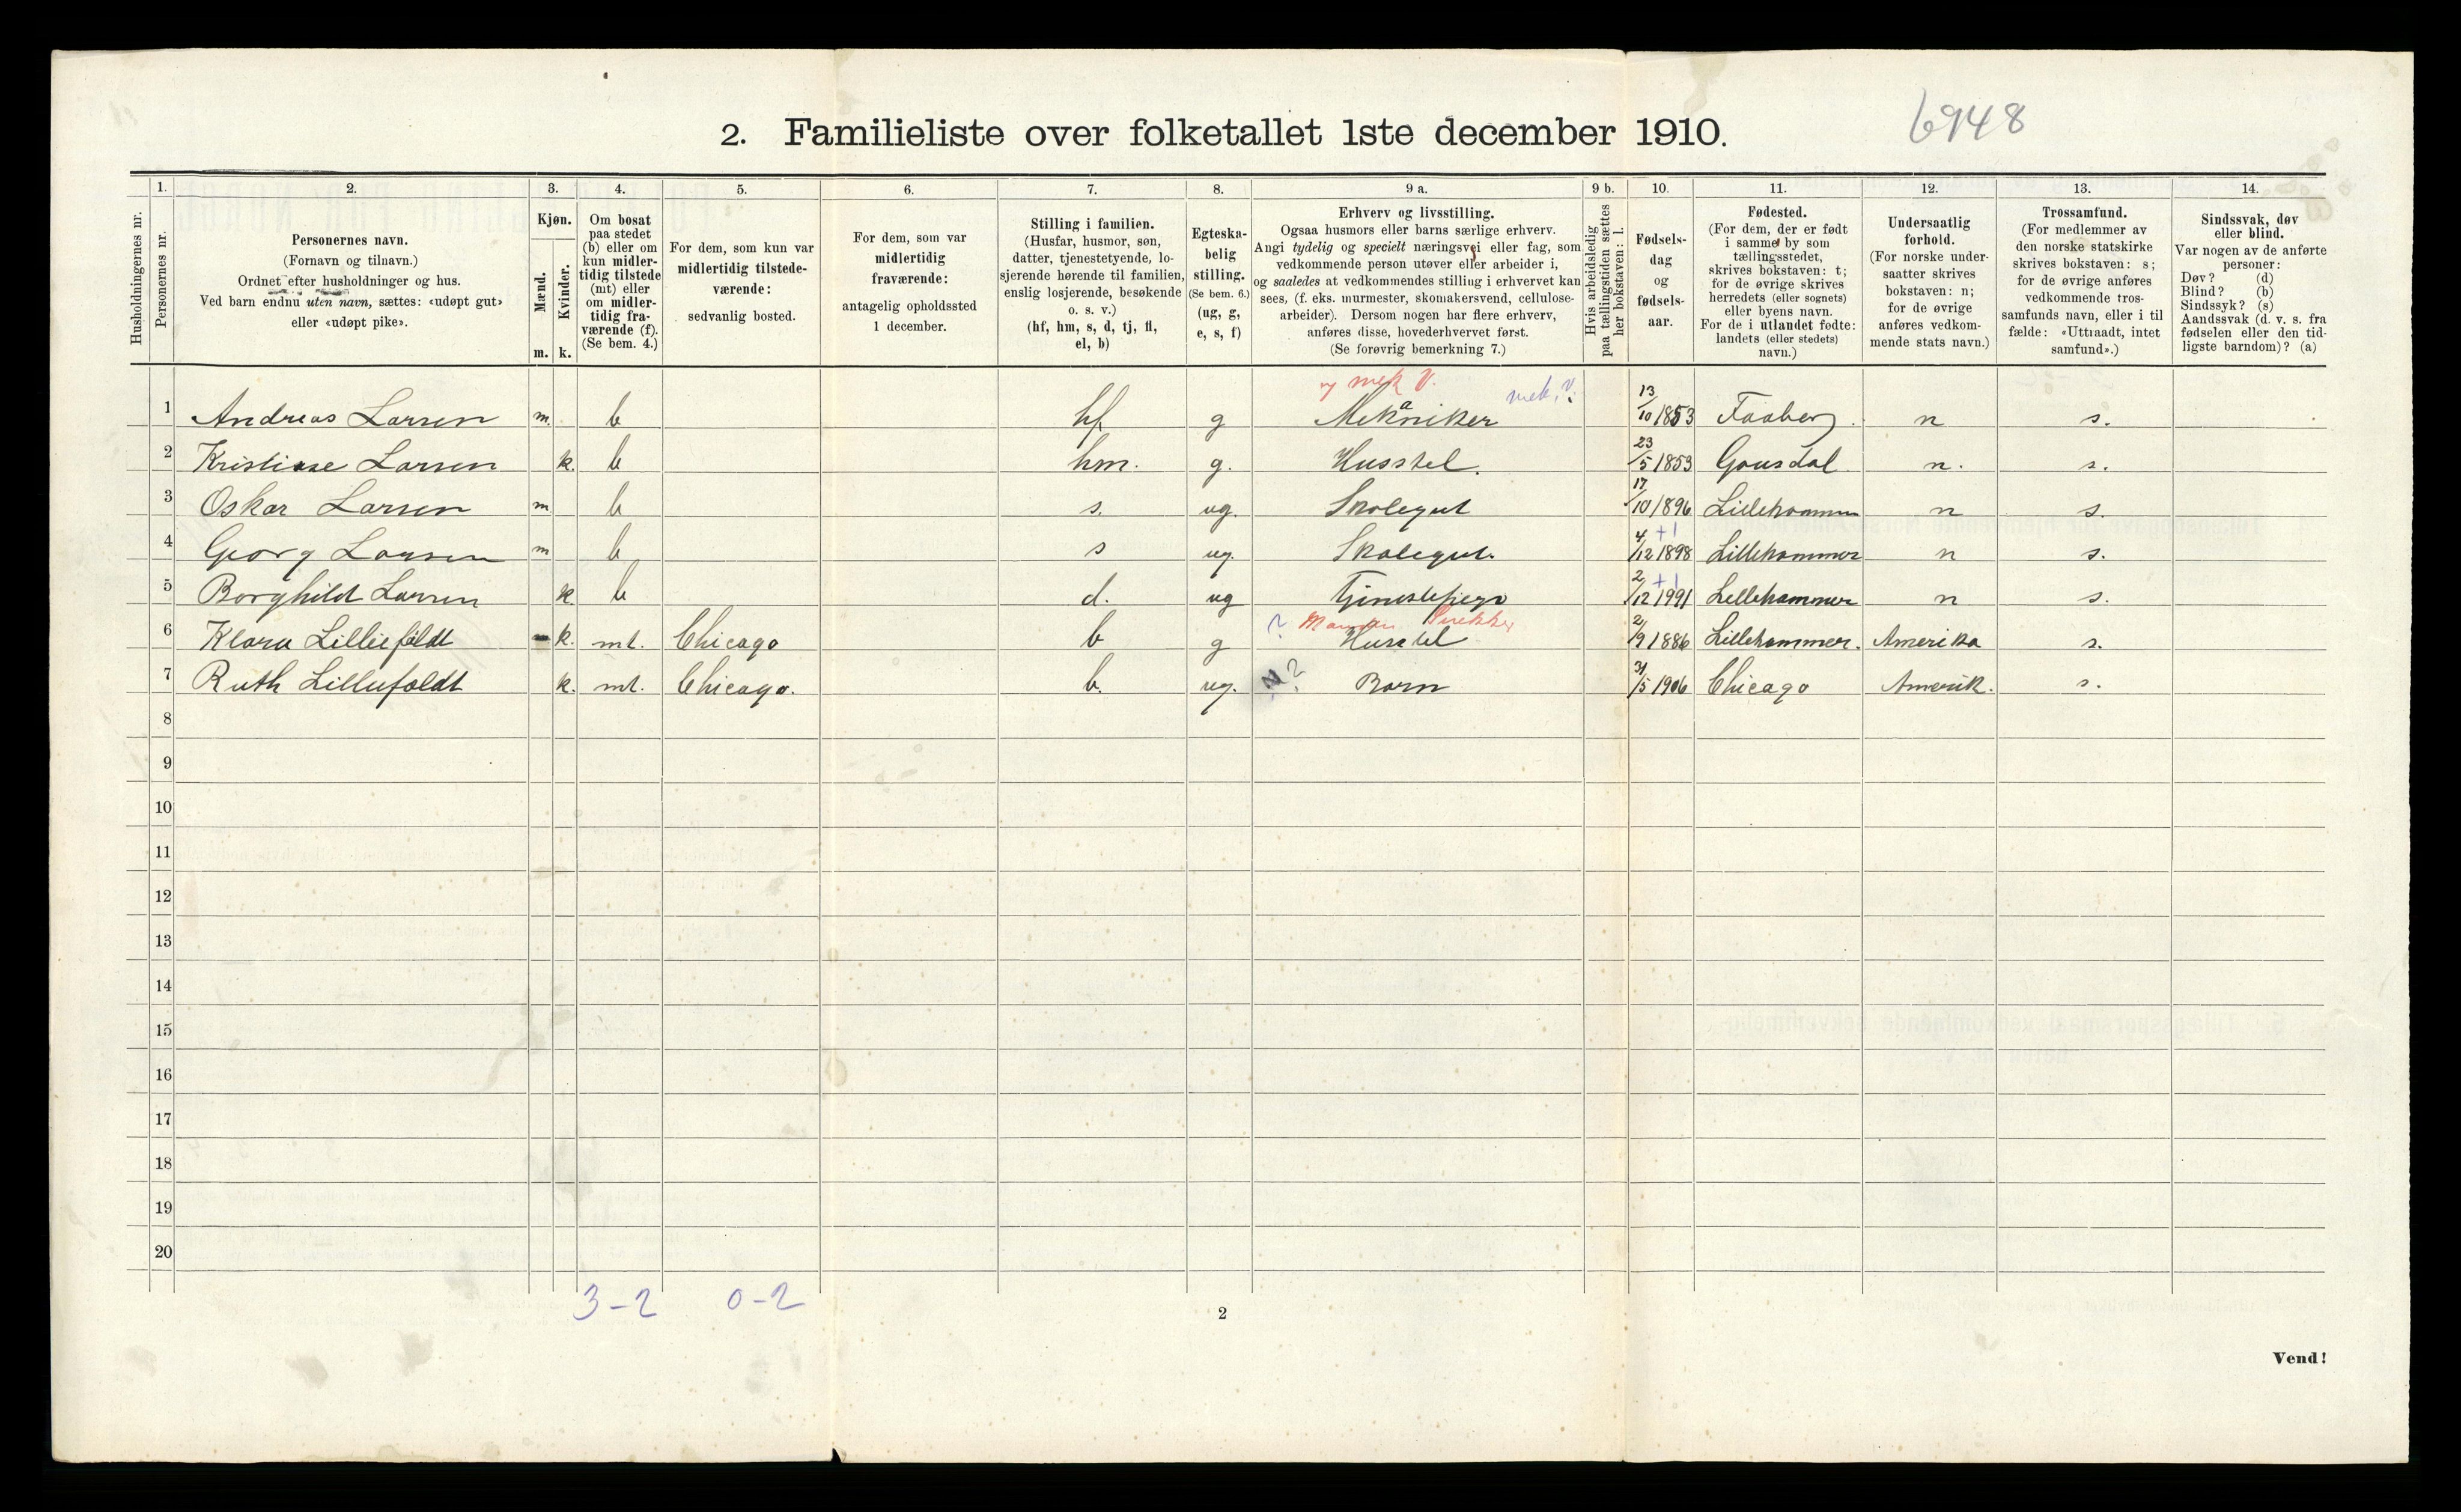 6948
2. Familieliste over folketallet 1ste december 1910.
Husholdningernes nr.
1. Personernes nr.
2. Personernes navn.
(Fornavn og tilnavn.)
Ordnet efter husholdninger og hus.
Ved barn endnu uten navn, sættes: «udøpt gut»
eller «udøpt pike».
3. Kjøn.
Mænd. m.
Kvinder. k.
4. Om bosat
paa stedet
(b) eller om
kun midler-
tidig tilstede
(mt) eller
om midler-
tidig fra-
værende (f).
(Se bem. 4.)
5. For dem, som kun var
midlertidig tilstede-
værende:
sedvanlig bosted.
6. For dem, som var
midlertidig
fraværende:
antagelig opholdssted
1 december.
7. Stilling i familien.
(Husfar, husmor, søn,
datter, tjenestetyende, lo-
sjerende hørende til familien,
enslig losjerende, besøkende
o. s. v.)
(hf, hm, s, d, tj, fl,
el, b)
8. Egteska-
belig
stilling.
(Se bem. 6.)
(ug, g,
e, s, f)
9 a. Erhverv og livsstilling.
Ogsaa husmors eller barns særlige erhverv.
Angi tydelig og specielt næringsvei eller fag, som
vedkommende person utøver eller arbeider i,
og saaledes at vedkommendes stilling i erhvervet kan
sees, (f. eks. murmester, skomakersvend, cellulose-
arbeider). Dersom nogen har flere erhverv,
anføres disse, hovederhvervet først.
(Se forøvrig bemerkning 7.)
9 b. Hvis arbeidsledig
paa tællingstiden sættes
her bokstaven: l.
10. Fødsels-
dag
og
fødsels-
aar.
11. Fødested.
(For dem, der er født
i samme by som
tællingsstedet,
skrives bokstaven: t;
for de øvrige skrives
herredets (eller sognets)
eller byens navn.
For de i utlandet fødte:
landets (eller stedets)
navn.)
12. Undersaatlig
forhold.
(For norske under-
saatter skrives
bokstaven: n;
for de øvrige
anføres vedkom-
mende stats navn.)
13. Trossamfund.
(For medlemmer av
den norske statskirke
skrives bokstaven: s;
for de øvrige anføres
vedkommende tros-
samfunds navn, eller i til
fælde: «Uttraadt, intet
samfund».)
14. Sindssvak, døv
eller blind.
Var nogen av de anførte
personer:
Døv? (d)
Blind? (b)
Sindssyk? (s)
Aandssvak (d. v. s. fra
fødselen eller den tid-
ligste barndom)? (a)
mek V. mek. V.
1 Andreas Larsen m. b hf. g Mekaniker 13/10 1853 Faaberg. n s.
2 Kristiane Larsen k. b hm. g. Husstel. 23/5 1853 Gausdal n. s.
3 Oskar Larsen m b s. ug. Skolegut 17/10 1896 Lillehammer n s.
+1
4 Georg Larsen m b s ug. Skolegut. 4/12 1898 Lillehammer n s.
+1
5 Borghild Larsen k. b d. ug Tjenestepige 2/12 1991 Lillehammer n s.
? Manden Snekker
6 Klara Lilliefeldt k. mt. Chicago b g Husstel 2/9 1886 Lillehammer. Amerika s.
7 Ruth Lilliefeldt k. mt. Chicago. b. ug. ? Barn 31/5 1906 Chicago Amerik. s.
8
9
10
11
12
13
14
15
16
17
18
19
20
3-2 0-2
2
Vend!